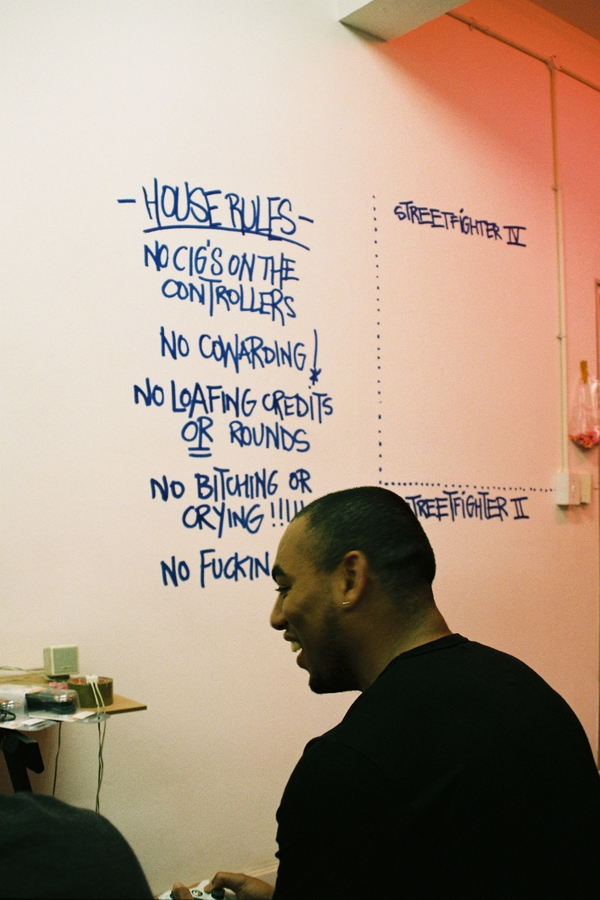 -HOUSE RULES-
NO CIG'S ON THE
CONTROLLERS
NO COWARDING!
NO LOAFING CREDITS
OR ROUNDS
NO BITCHING OR
CRYING !!!!!
NO FUCKIN
STREETFIGHTER IV
STREETFIGHTER II